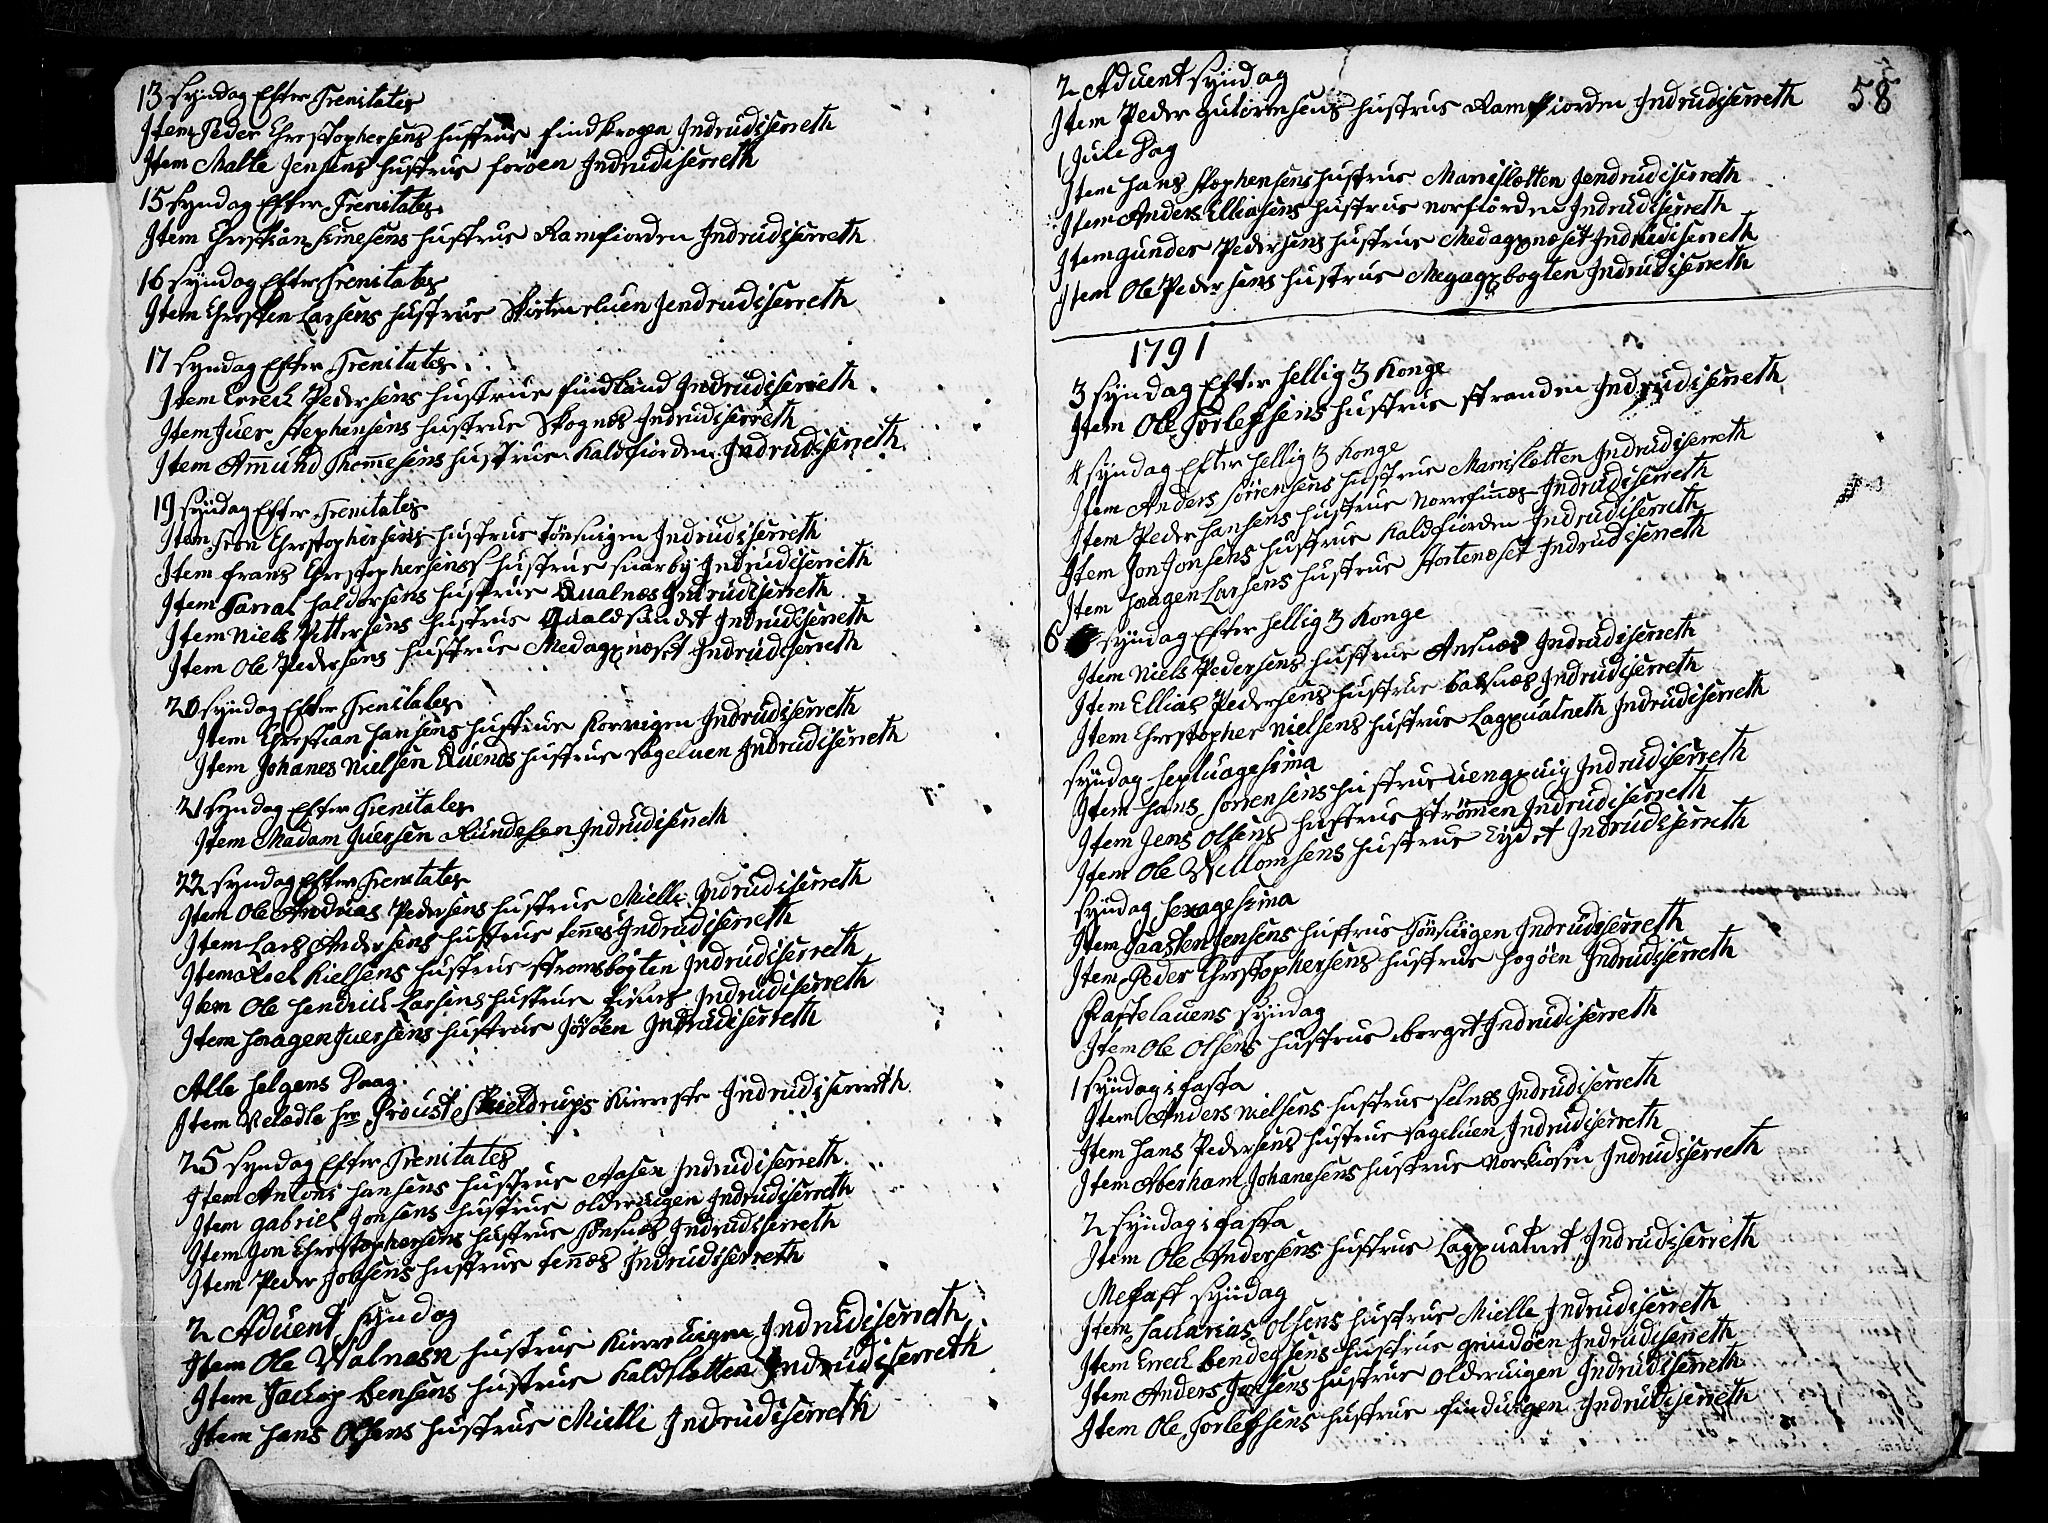 13 syndag Efter Trenitates
Item Peder Chrestophersens hustrue findkrogen Indrudiserreth
Item Malte Jensens hustrue forøen Indrudiserreth
15 syndag Efter Trenitates
Item Chrestian simesens hustrue Ramfiorden Indrudiserreth
16 syndag Efter Trenitates
Item Chresten Larsens hustrue Indrudiserreth
17 syndag Efter Trenitates
Item Erreck Pedersens hustrue findland Indrudiserreth
Item Juer stephensens hustrue Skognes Indrudiserreth
Item Amund Thommesens hustrue Kaldfiorden Indrudiserreth
19 syndag Efter Trenitates
Item Tron Chrestophersens hustrue tønsuigen Indrudiserreth
Item frans Chrestophersens hustrue suarby Indrudiserreth
Item Tarral haldorsens hustrue Qualnæs Indrudiserreth
Item Niels Pettersens hustrue Qualdsundet Indrudiserreth
Item Ole Pedersens hustrue Medagxnæset Indrudiserreth
20 syndag Efter Trenitates
Item Chrestian hansens hustrue Korvigen Indrudiserreth
Item Johanes Nielsen Quends hustrue sageluen Indrudiserreth
21 syndag Efter Trenitates
Item Madam Juersen Rundesen Indrudiserreth
22 syndag Efter Trenitates
Item Ole Andreas Pedersens hustrue Mielle Indrudiserreth
Item Lars Andersens hustrue tennes Indrudiserreth
Item Axel Nielsens hustrue stromsbogten Indrudiserreth
Item Ole hendrick Larsens hustrue Indrudiserreth
Item haagen Juersens hustrue Jøsøen Indrudiserreth
Alle helgens Daag
Item Velædle hr Proust Skieldrups Kierreste Indrudiserreth
25 syndag Efter Trenitates
Item Antoni hansens hustrue Aasen Indrudiserreth
Item gabriel Jonsens hustrue oldervigen Indrudiserreth
Item Jon Chrestophersens hustrue Tønsnes Indrudiserreth
Item Peder Jobsens hustrue tennæs Indrudiserreth
2 Aduent syndag
Item Ole Valnæsn hustrue Kierreuigen Indrudiserreth
Item Jackop bensens hustrue Kaldsletten Indrudiserreth
Item hans Olsens hustrue Mielle Indrudiserreth
58
2 Aduent syndag
Item Peder guttormsens hustrue Ramfiorden Indrudiserreth
1 Jule Dag
Item hans stephensens hustrue Marrislætten Jendrudiserreth
Item Anders Elliasens hustrue norfiorden Indrudiserreth
Item gunder Pedersens hustrue Medagxnæset Indrudiserreth
Item Ole Pedersens hustrue Megagxbogten Indrudiserreth
1791
3 syndag Efter hellig 3 Konge
Item Ole Torlefsens hustrue stranden Indrudiserreth
4 syndag Efter hellig 3 Konge
Item Anders sørrensens hustrue Marrislætten Indrudiserreth
Item Peder hansens hustrue Norrefinnes Indrudiserreth
Item Jon Jonsens hustrue Kaldfiorden Indrudiserreth
Item haagen Larsens hustrue stortenæset Indrudiserreth
6 syndag Efter hellig 3 Konge
Item Niels Pedersens hustrue Ansnæs Indrudiserreth
Item Ellias Pedersens hustrue balsnæs Indrudiserreth
Item Chrestopher Nielsens hustrue Lagxualneth Indrudiserreth
syndag septuagesima
Item hans sorrensens hustrue uengxuig Indrudiserreth
Item Jens Olsens hustrue strømmen Indrudiserreth
Item Ole Vellomsens hustrue Eydet Indrudiserreth
syndag sexagesima
Item Jaasten Jensens hustrue Tønsuigen Indrudiserreth
Item Peder Chrestophersens hustrue hogøen Indrudiserreth
Fastelauens syndag
Item Ole Olsens hustrue berget Indrudiserreth
1 syndag i fasta
Item Anders Nielsens hustrue selnæs Indrudiserreth
Item hans Pedersens hustrue sageluen Indrudiserreth
Item Aberham Johanesens hustrue Norkiosen Indrudiserreth
2 syndag i fasta
Item Ole Andersens hustrue Indrudiserreth
Mefast syndag
Item sackarias Olsens hustrue Mielle Indrudiserreth
Item Erreck bendegsens hustrue grindøen Indrudiserreth
Item Anders Jonsens hustrue olderuigen Indrudiserreth
Item Ole Torlefsens hustrue finduigen Indrudiserreth